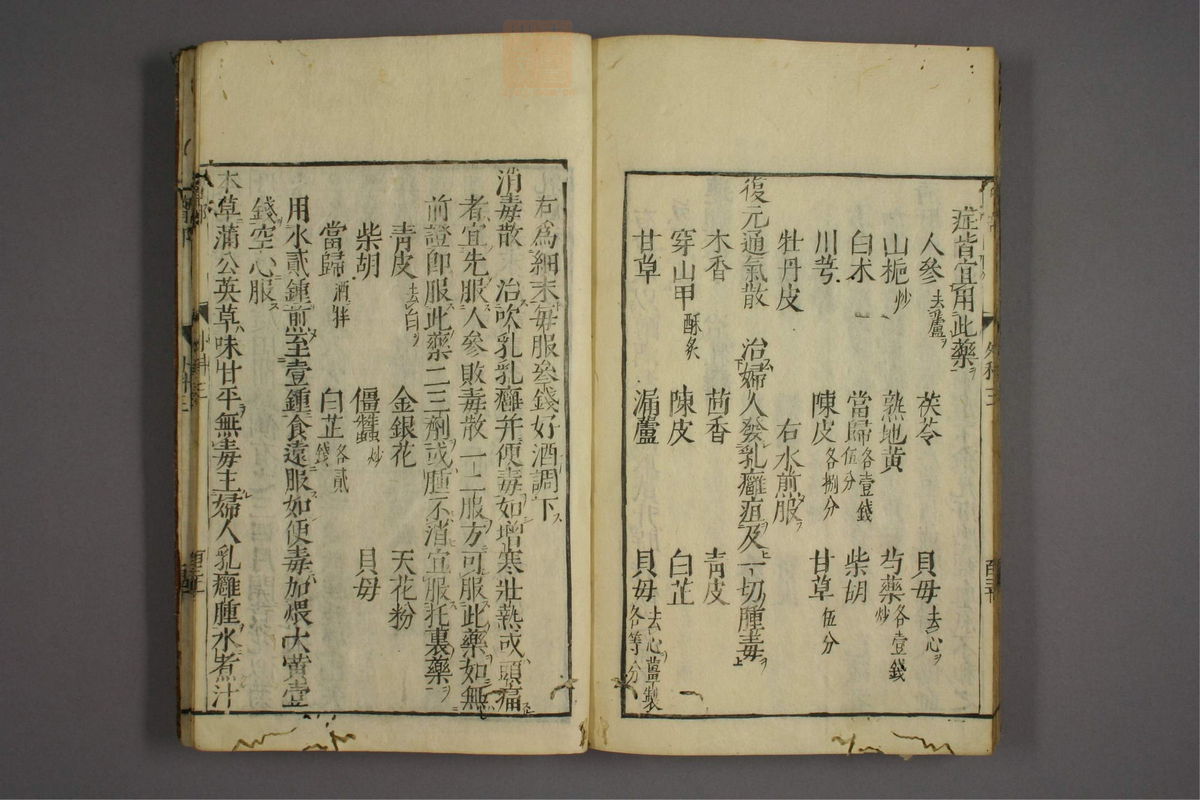 症皆宜用此藥
人參去蘆 茯苓 貝母去心
山梔炒 熟地黃 芍藥各壹錢炒
白朮 當歸各壹錢伍分 柴胡
川芎 陳皮各捌分 甘草伍分
牡丹皮 右水煎服
復元通氣散 治婦人發乳癰疽及一切腫毒
木香 茴香 青皮
穿山甲酥炙 陳皮 白芷
甘草 漏蘆 貝母去心薑製各等分
右為細末每服叁錢好酒調下
消毒散 治吹乳乳癰并便毒如增寒壯熱或頭痛
者宜先服人參敗毒散一二服方可服此藥如無
前證即服此藥二三劑或腫不消宜服托裏藥
青皮去白 金銀花 天花粉
柴胡 僵蠶炒 貝母
當歸酒拌 白芷各貳錢
用水貳鍾煎至壹鍾食遠服如便毒加煨大黃壹
錢空心服
本草蒲公英草味甘平無毒主婦人乳癰腫水煮汁